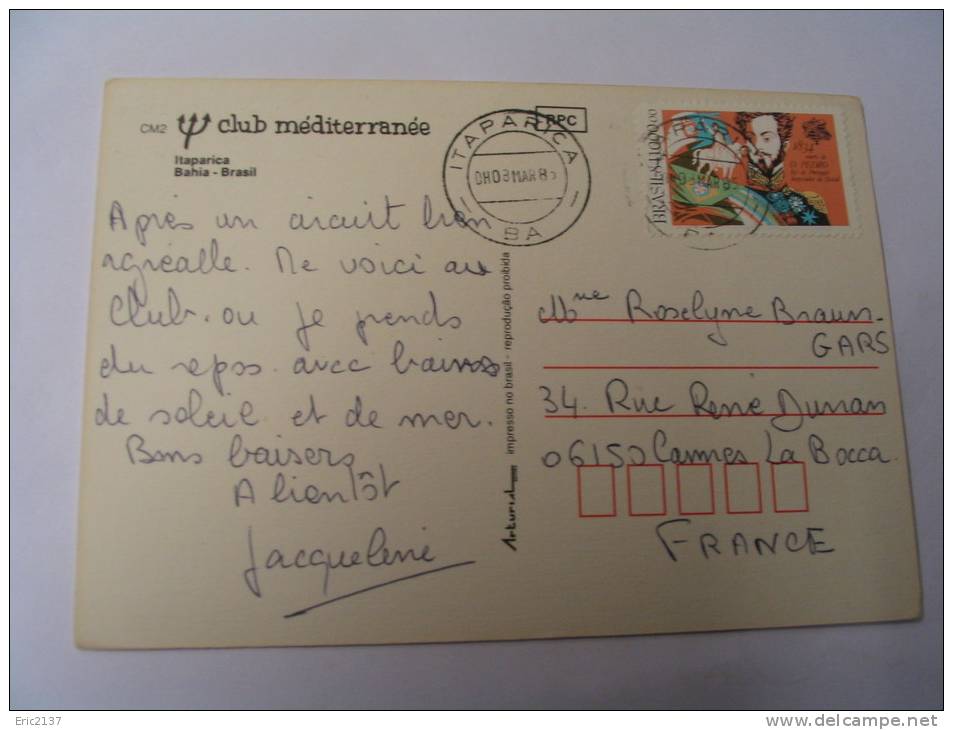 CM2 club méditerranée
Itaparica
Bahia - Brasil
Après un circuit bien
agréable. Me voici au
Club. ou je prends
du repos. avec bains
de soleil et de mer.
Bons baisers
A bientôt
Jacqueline
impresso no brasil - reprodução proibida
Arturial
ITAPARICA
08 MAR 85
BA
RPC
BRASIL 84 1000,00
1834
D. PEDRO
Mme Roselyne Braun-
GARS
34. Rue René Dunan
06150 Cannes La Bocca
FRANCE
Eric2137
delcampe.net